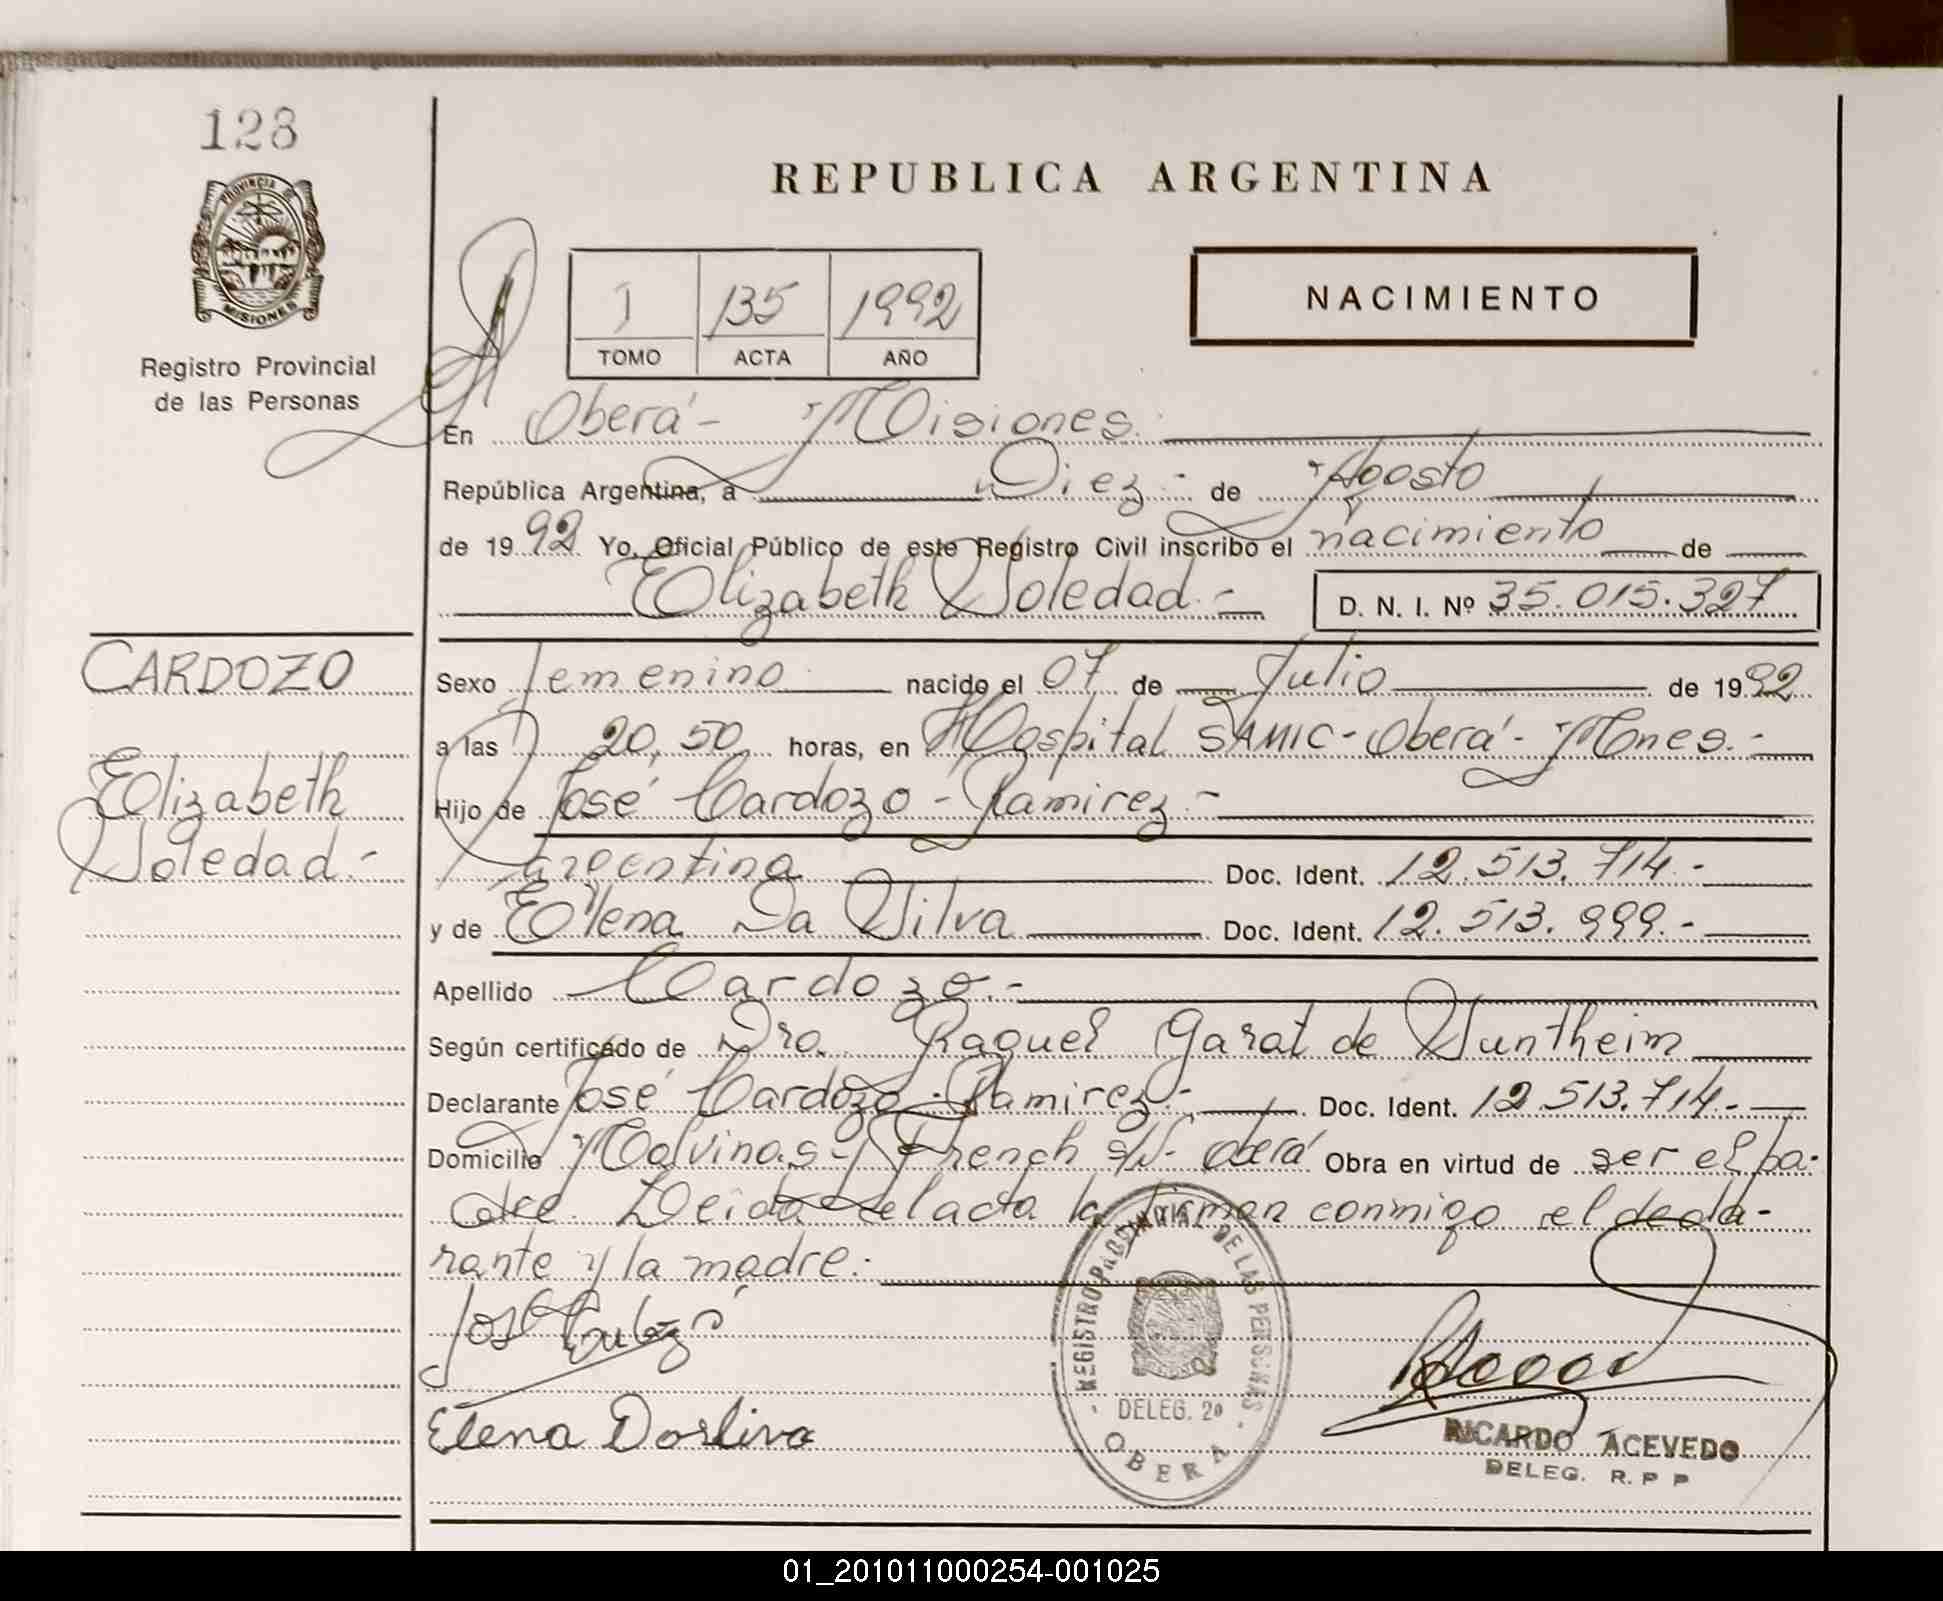 128
PROVINCIA
MISIONES
Registro Provincial
de las Personas
REPUBLICA ARGENTINA
NACIMIENTO
I 135 1992
TOMO ACTA AÑO
En Oberá - Misiones.
República Argentina, a Diez.- de Agosto
de 1992. Yo, Oficial Público de este Registro Civil inscribo el nacimiento de
Elizabeth Soledad.-
D. N. I. Nº 35.015.327
CARDOZO
Elizabeth
Soledad.-
Sexo femenino nacido el 07 de Julio de 1992
a las 20,50 horas, en Hospital SAMIC - Oberá - Mnes.-
Hijo de José Cardozo - Ramirez.-
Argentina Doc. Ident. 12.513.714.-
y de Elena Da Silva Doc. Ident. 12.513.999.-
Apellido Cardozo.-
Según certificado de Dra. Raquel Garat de Suntheim
Declarante José Cardozo - Ramirez.- Doc. Ident. 12 513.714.-
Domicilio Malvinas y French s/N- Oberá Obra en virtud de ser el pa-
dre. Leida el acta la firman conmigo el decla-
rante y la madre.-
REGISTRO PROVINCIAL DE LAS PERSONAS
DELEG. 2ª
OBERA
Elena Dasliva
RICARDO ACEVEDO
DELEG. R. P P
01_201011000254-001025